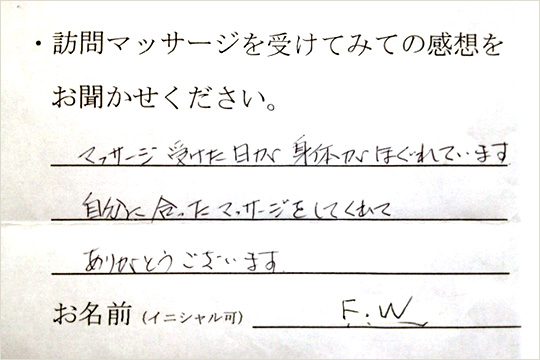 ・訪問マッサージを受けてみての感想を
お聞かせください。
マッサージ受けた日が身体がほぐれています
自分に合ったマッサージをしてくれて
ありがとうございます
お名前（イニシャル可） F.W